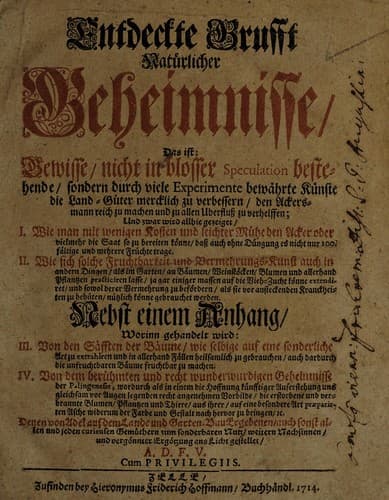 Entdeckte Grufft
Natürlicher
Geheimnisse/
Das ist:
Gewisse/ nicht in blosser Speculation beste-
hende/ sondern durch viele Experimente bewährte Künste
die Land-Güter mercklich zu verbessern/ den Ackers-
mann reich zu machen und zu allen Uberfluß zu verhelffen;
Und zwar wird allhie gezeiget/
I. Wie man mit wenigen Kosten und leichter Mühe den Acker oder
vielmehr die Saat so zu bereiten könne/ daß auch ohne Düngung es nicht nur 100.
fältige und mehrere Früchte trage.
II. Wie sich solche Fruchtbarkeit und Vermehrungs-Kunst auch in
andern Dingen/ als im Garten/ an Bäumen/ Weinstöcken/ Blumen und allerhand
Pflantzen practiciren lasse/ ja gar einiger massen auf die Vieh-Zucht könne extendi-
ret/ und sowol derer Vermehrung zu befödern/ als sie vor ansteckenden Kranckhei-
ten zu behüten/ nützlich könne gebrauchet werden.
Nebst einem Anhang/
Worinn gehandelt wird:
III. Von den Säfften der Bäume/ wie selbige auf eine sonderliche
Art zu extrahiren und in allerhand Fällen heilsamlich zu gebrauchen/ auch dardurch
die unfruchtbaren Bäume fruchtbar zu machen.
IV. Von dem berühmten und recht wunderwürdigen Geheimnisse
der Palingenesie, wordurch als in einem die Hoffnung künfftiger Auferstehung uns
gleichsam vor Augen legenden recht angenehmen Vorbilde/ die erstorbene und ver-
brannte Blumen/ Pflantzen und Thiere/ aus ihrer/ auf eine besondere Art præparir-
ten Asche widerum der Farbe und Gestalt nach hervor zu bringen/ ec.
Denen von Adel auf dem Lande und Garten-Bau Ergebenen auch sonst al-
len und jeden curiosen Gemüthern zum sonderbaren Nutz/ weitern Nachsinnen/
und vergönneter Ergötzung ans Licht gestellet/
A. D. F. V.
Cum PRIVILEGIIS.
ZELLE/
Zufinden bey Hieronymus Friderich Hoffmann/ Buchhändl. 1714.